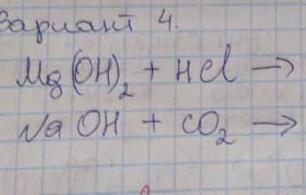 Вариант 4.
Mg(OH)₂ + HCl →
NaOH + CO₂ →